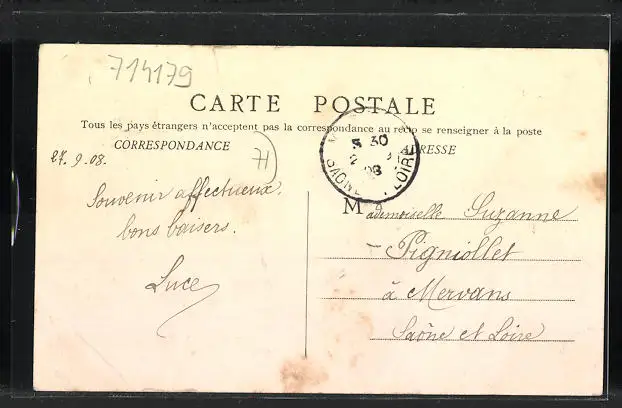 714179
CARTE POSTALE
Tous les pays étrangers n'acceptent pas la correspondance au recto se renseigner à la poste
CORRESPONDANCE
ADRESSE
27.9.08.
71
5 30
08
SAONE LOIRE
Souvenir affectueux,
bons baisers.
Luce
Mademoiselle Suzanne
Pigniollet
à Mervans
Saône et Loire